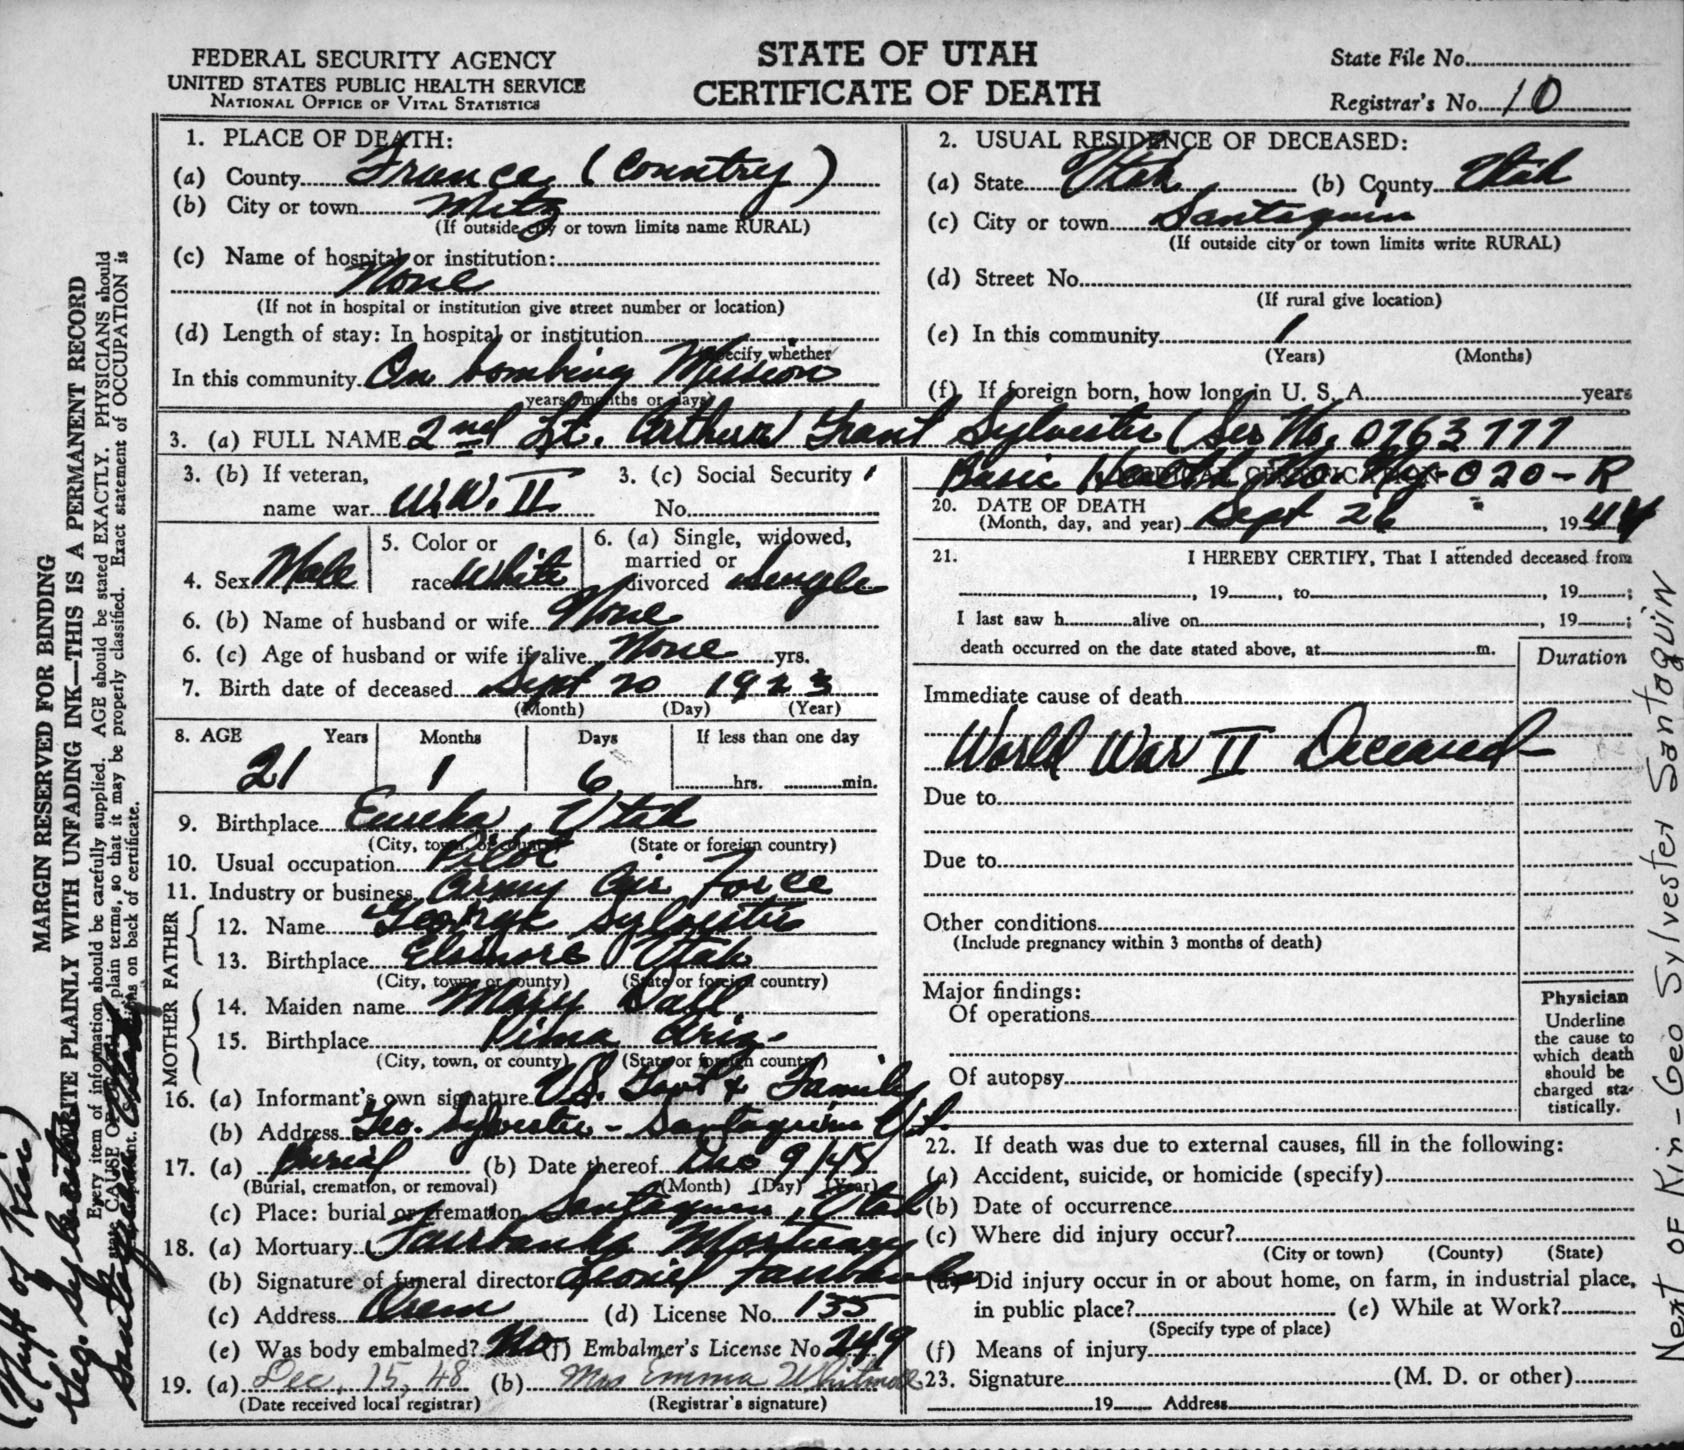 FEDERAL SECURITY AGENCY
UNITED STATES PUBLIC HEALTH SERVICE
NATIONAL OFFICE OF VITAL STATISTICS
STATE OF UTAH
CERTIFICATE OF DEATH
State File No.
Registrar's No. 10
1. PLACE OF DEATH:
(a) County France (Country)
(b) City or town Metz
(If outside city or town limits name RURAL)
(c) Name of hospital or institution:
None
(If not in hospital or institution give street number or location)
(d) Length of stay: In hospital or institution
(Specify whether
In this community On bombing Mission
years, months or days)
2. USUAL RESIDENCE OF DECEASED:
(a) State Utah (b) County Utah
(c) City or town Santaquin
(If outside city or town limits write RURAL)
(d) Street No.
(If rural give location)
(e) In this community 1
(Years) (Months)
(f) If foreign born, how long in U. S. A. years
3. (a) FULL NAME 2nd Lt. Arthur Grant Sylvester (Ser No. 0763777
3. (b) If veteran,
name war W.W. II
3. (c) Social Security
No.
4. Sex Male
5. Color or
race White
6. (a) Single, widowed,
married or
divorced Single
6. (b) Name of husband or wife None
6. (c) Age of husband or wife if alive None yrs.
7. Birth date of deceased Sept 20 1923
(Month) (Day) (Year)
8. AGE Years Months Days If less than one day
21 1 6 hrs. min.
9. Birthplace Eureka, Utah
(City, town, or county) (State or foreign country)
10. Usual occupation Pilot
11. Industry or business Army Air Force
FATHER
12. Name George Sylvester
13. Birthplace Elsinore Utah
(City, town or county) (State or foreign country)
MOTHER
14. Maiden name Mary Dall
15. Birthplace Pima Ariz.
(City, town, or county) (State or foreign country)
16. (a) Informant's own signature U.S. Govt & Family
(b) Address Geo. Sylvester - Santaquin Ut.
17. (a) Burial (b) Date thereof Dec 9/48
(Burial, cremation, or removal) (Month) (Day) (Year)
(c) Place: burial or cremation Santaquin, Utah
18. (a) Mortuary Fairbanks Mortuary
(b) Signature of funeral director
(c) Address Orem (d) License No. 135
(e) Was body embalmed? No (f) Embalmer's License No 249
19. (a) Dec. 15, 48 (b) Mrs Emma
(Date received local registrar) (Registrar's signature)
MEDICAL CERTIFICATION
Basic Health No. 020-R
20. DATE OF DEATH
(Month, day, and year) Sept 26, 1944
21. I HEREBY CERTIFY, That I attended deceased from
, 19 , to , 19 ;
I last saw h alive on , 19 ;
death occurred on the date stated above, at m.
Duration
Immediate cause of death
World War II Deceased
Due to
Due to
Other conditions
(Include pregnancy within 3 months of death)
Major findings:
Of operations
Of autopsy
Physician
Underline
the cause to
which death
should be
charged sta-
tistically.
22. If death was due to external causes, fill in the following:
(a) Accident, suicide, or homicide (specify)
(b) Date of occurrence
(c) Where did injury occur?
(City or town) (County) (State)
(d) Did injury occur in or about home, on farm, in industrial place,
in public place? (e) While at Work?
(Specify type of place)
(f) Means of injury
23. Signature (M. D. or other)
19 Address
MARGIN RESERVED FOR BINDING
WRITE PLAINLY WITH UNFADING INK—THIS IS A PERMANENT RECORD
Every item of information should be carefully supplied. AGE should be stated EXACTLY. PHYSICIANS should
state CAUSE OF DEATH in plain terms, so that it may be properly classified. Exact statement of OCCUPATION is
important. See instructions on back of certificate.
(Next of Kin)
Geo. Sylvester
Santaquin Utah
Next of Kin - Geo Sylvester Santaquin